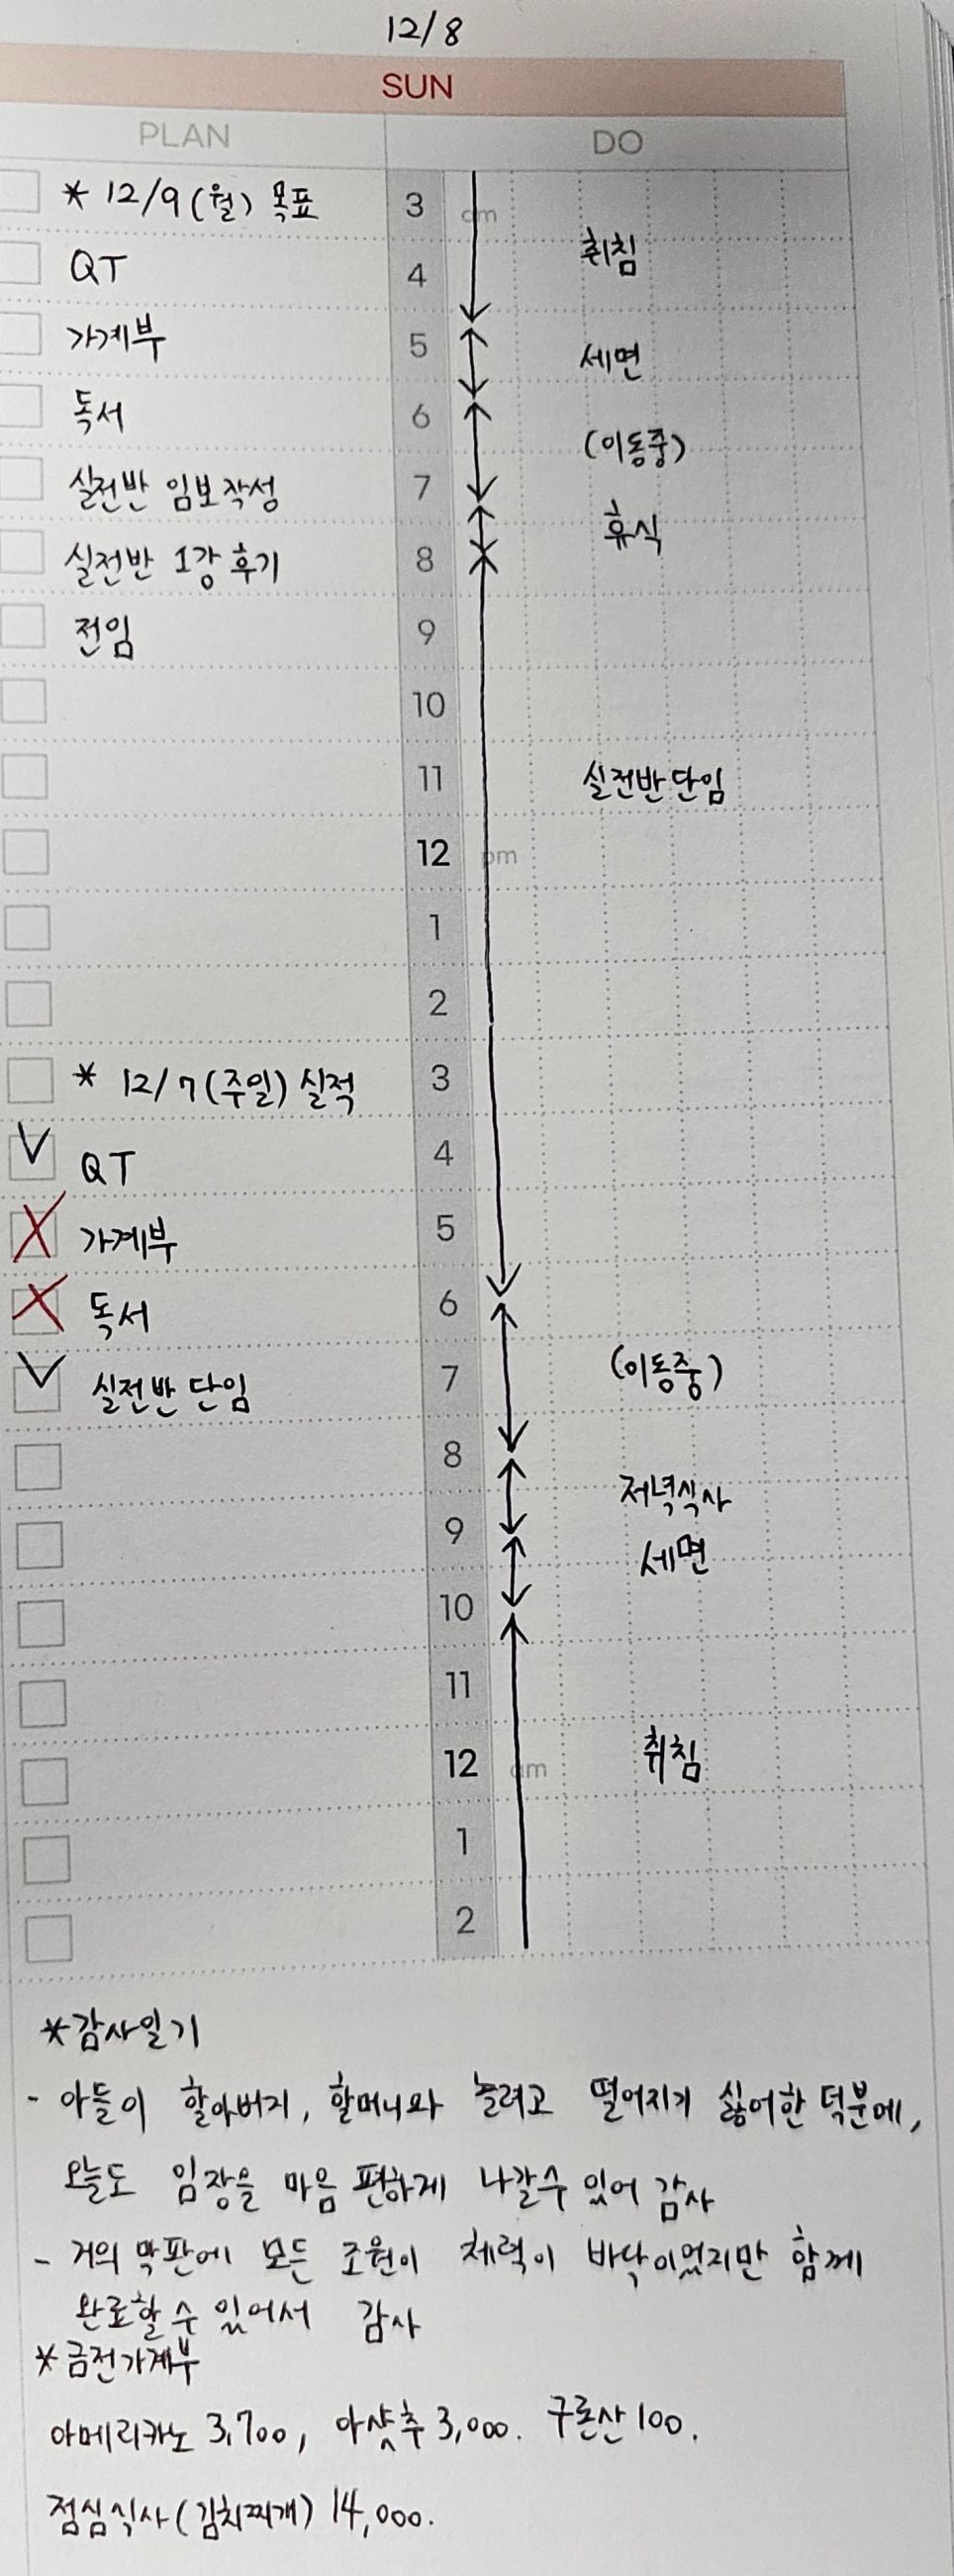 12/8
SUN
PLAN
DO
* 12/9(월) 목표
QT
가계부
독서
실전반 임보작성
실전반 1강 후기
전임
* 12/7(주일) 실적
QT
가계부
독서
실전반 단임
3 am
4 취침
5 세면
6 (이동중)
7 휴식
8
9
10
11 실전반 단임
12 pm
1
2
3
4
5
6
7 (이동중)
8 저녁식사
9 세면
10
11
12 am 취침
1
2
*감사일기
- 아들이 할아버지, 할머니와 놀려고 떨어지기 싫어한 덕분에,
오늘도 임장을 마음 편하게 나갈수 있어 감사
- 거의 막판에 모든 조원이 체력이 바닥이었지만 함께
완료할 수 있어서 감사
*금전가계부
아메리카노 3,700, 아샷추 3,000. 구론산 100.
점심식사(김치찌개) 14,000.